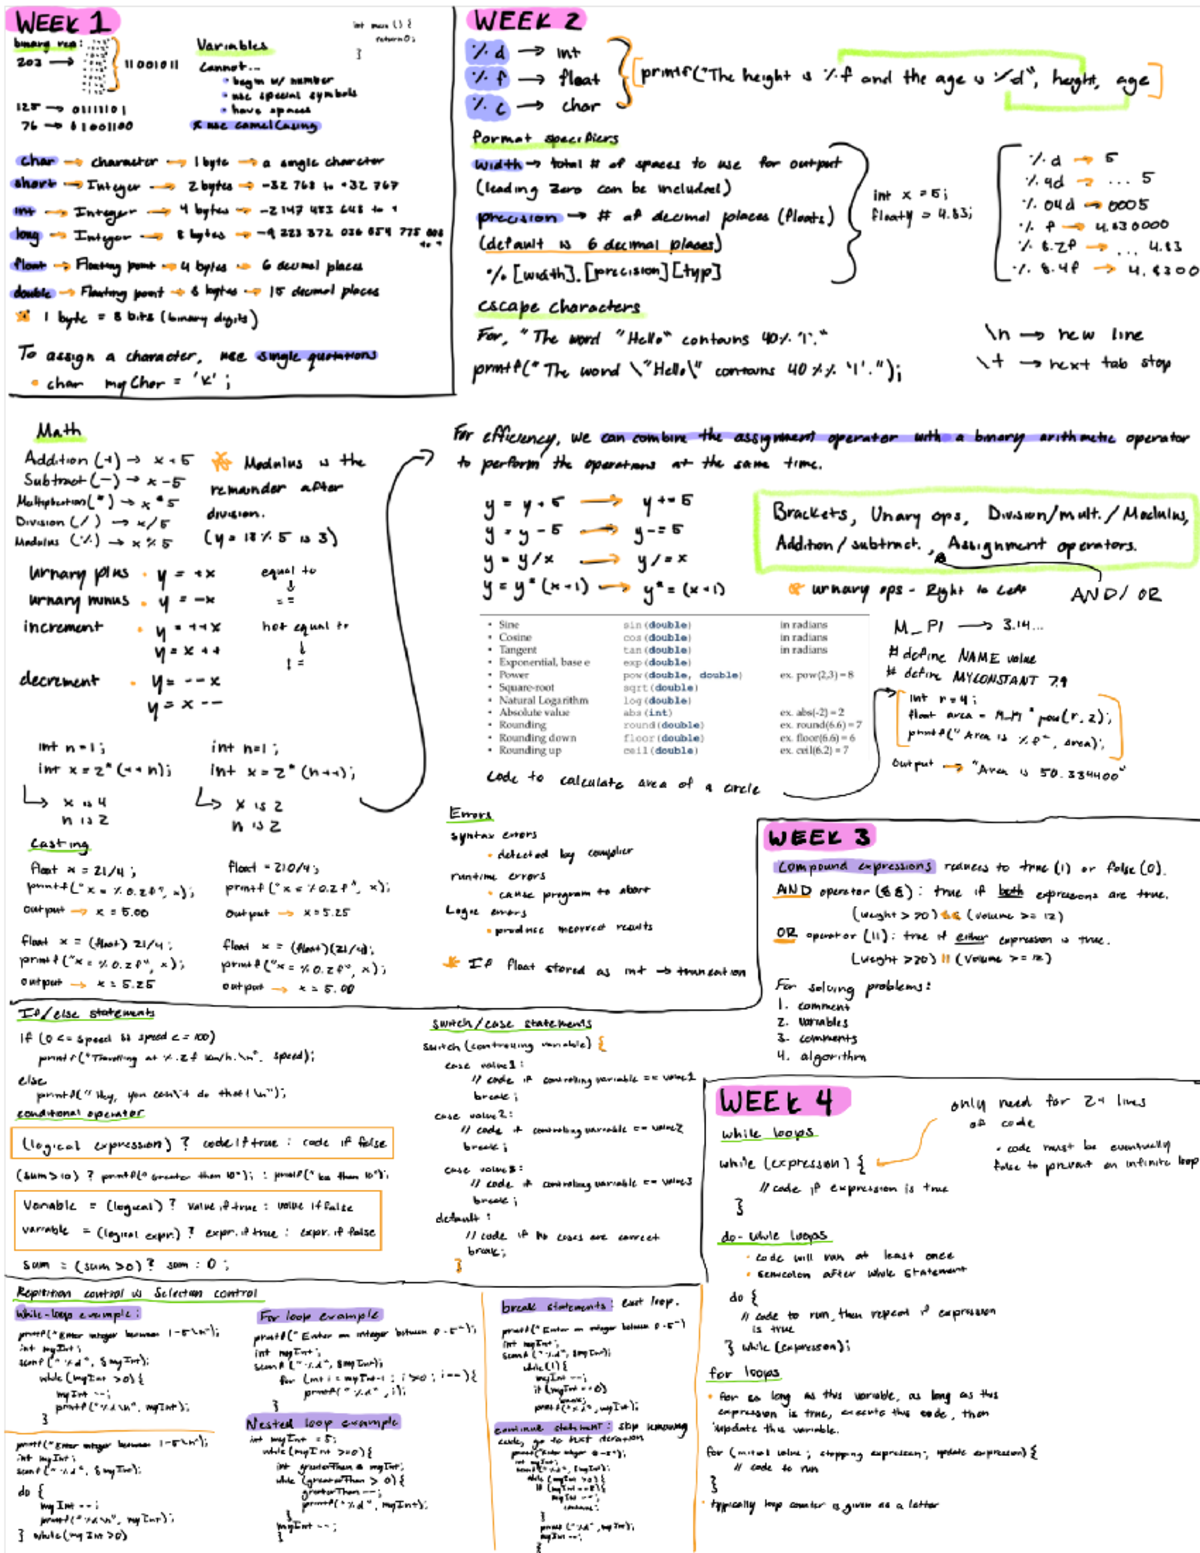 WEEK 1
int main () {
return 0;
}
binary rep:
203 → 11001011
125 → 01111101
76 → 01001100
Variables
Cannot...
• begin w/ number
• use special symbols
• have spaces
* use camelCasing
char → character → 1 byte → a single character
short → Integer → 2 bytes → -32 768 to +32 767
int → Integer → 4 bytes → -2 147 483 648 to +
long → Integer → 8 bytes → -9 223 372 036 854 775 808 to +
float → Floating point → 4 bytes → 6 decimal places
double → Floating point → 8 bytes → 15 decimal places
1 byte = 8 bits (binary digits)
To assign a character, use single quotations
• char myChar = 'K';
WEEK 2
%d → int
%f → float
%c → char
printf("The height is %f and the age is %d", height, age
format specifiers
width → total # of spaces to use for output
(leading zero can be included)
precision → # of decimal places (floats)
(default is 6 decimal places)
% [width].[precision][typ]
int x = 5;
float y = 4.83;
%d → 5
%4d → ... 5
%04d → 0005
%f → 4.830000
%8.2f → .... 4.83
%8.4f → 4.8300
escape characters
For, "The word "Hello" contains 40% 'l'."
printf("The word \"Hello\" contains 40%% 'l'.");
\n → new line
\t → next tab stop
Math
Addition (+) → x + 5
Subtract (-) → x - 5
Multiplication (*) → x * 5
Division (/) → x/5
Modulus (%) → x % 5
Modulus is the
remainder after
division.
(y = 18 % 5 is 3)
urnary plus • y = +x
urnary minus • y = -x
increment • y = ++x
y = x++
decrement • y = --x
y = x--
equal to
↓
==
not equal to
↓
!=
int n=1;
int x=2*(++n);
x is 4
n is 2
int n=1;
int x=2*(n++);
x is 2
n is 2
Casting
float x = 21/4;
printf("x = %0.2f", x);
output → x = 5.00
float = 21.0/4;
printf("x = %0.2f", x);
output → x = 5.25
float x = (float) 21/4;
printf("x = %0.2f", x);
output → x = 5.25
float x = (float)(21/4);
printf("x = %0.2f", x);
output → x = 5.00
For efficiency, we can combine the assignment operator with a binary arithmetic operator
to perform the operations at the same time.
y = y + 5 → y += 5
y = y - 5 → y -= 5
y = y/x → y /= x
y = y*(x+1) → y* = (x+1)
Brackets, Unary ops, Division/mult./Modulus,
Addition/subtract., Assignment operators.
urnary ops - Right to Left
AND/OR
• Sine sin(double) in radians
• Cosine cos(double) in radians
• Tangent tan(double) in radians
• Exponential, base e exp(double)
• Power pow(double, double) ex. pow(2,3) = 8
• Square-root sqrt(double)
• Natural Logarithm log(double)
• Absolute value abs(int) ex. abs(-2) = 2
• Rounding round(double) ex. round(6.6) = 7
• Rounding down floor(double) ex. floor(6.6) = 6
• Rounding up ceil(double) ex. ceil(6.2) = 7
M_PI → 3.14...
# define NAME value
# define MYCONSTANT 7.9
int r = 4;
float area = M_PI * pow(r, 2);
printf("Area is %f", area);
output → "Area is 50.334400"
code to calculate area of a circle
Errors
syntax errors
• detected by complier
runtime errors
• cause program to abort
Logic errors
• produce incorrect results
If float stored as int → truncation
WEEK 3
Compound expressions reduces to true (1) or false (0).
AND operator (&&): true if both expressions are true.
(weight > 20) && (volume >= 12)
OR operator (||): true if either expression is true.
(weight >20) || (volume >= 12)
For solving problems:
1. comment
2. variables
3. comments
4. algorithm
If/else statements
if (0 <= speed && speed <= 100)
printf("Travelling at %.2f km/h.\n", speed);
else
printf("Hey, you can't do that! \n");
conditional operator
(logical expression) ? code if true : code if false
(sum > 10) ? printf("Greater than 10"); : printf("less than 10");
Variable = (logical) ? value if true : value if false
variable = (logical expr.) ? expr. if true : expr. if false
sum = (sum >0)? sum : 0 ;
switch/case statements
switch (controlling variable) {
case value1:
// code if controlling variable == value1
break;
case value2:
// code if controlling variable == value2
break;
case value3:
// code if controlling variable == value3
break;
default :
// code if no cases are correct
break;
}
WEEK 4
while loops
only need for 2+ lines
of code
while (expression) {
// code if expression is true
}
• code must be eventually
false to prevent an infinite loop
do-while loops
• code will run at least once
• semicolon after while statement
do {
// code to run, then repeat if expression
is true
} while (expression);
for loops
• for as long as this variable, as long as this
expression is true, execute this code, then
update this variable.
for (initial value ; stopping expression; update expression) {
// code to run
}
• typically loop counter is given as a letter
Repitition control vs Selection control
while-loop example:
printf("Enter integer between 1-5\n");
int myInt;
scanf("%d", &myInt);
while (myInt >0) {
myInt --;
printf("%d\n", myInt);
}
printf("Enter integer between 1-5\n");
int myInt;
scanf("%d", &myInt);
do {
myInt --;
printf("%d\n", myInt);
} while (myInt >0)
For loop example
printf("Enter an integer between 0-5")
int myInt;
scanf("%d", &myInt);
for (int i = myInt-1; i >0; i--){
printf("%d", i);
}
Nested loop example
int myInt = 5;
while (myInt >=0) {
int greaterThan = myInt;
while (greaterThan > 0) {
greaterThan --;
printf("%d", myInt);
}
myInt --;
}
break statements: exit loop.
printf("Enter an integer between 0-5")
int myInt;
scanf("%d", &myInt);
while(1) {
myInt --;
if (myInt ==0)
break;
printf("%d", myInt);
continue statement: skip remaining
code, go to next iteration
printf("Enter integer 0-5");
int myInt;
scanf("%d", &myInt);
while (myInt >0) {
if (myInt ==3) {
myInt --;
continue;
}
printf("%d", myInt);
myInt --;
}